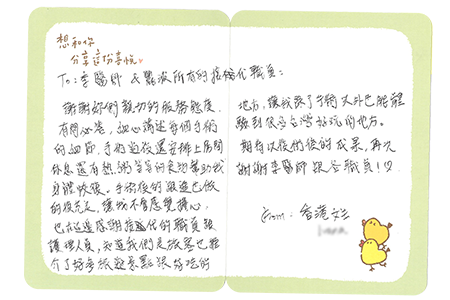 想和你
分享這份喜悅。
To: 李醫師 & 所有的 職員:
謝謝妳們親切的服務態度,
有問必答, 細心講述每個手術
的細節. 手術過後還安排上房間
休息還有 等等的食物幫助我
身體恢復。手術後的跟進也做
的很充足, 讓我不會感覺擔心,
也在這邊感謝 的職員跟
護理人員, 知道我們是旅客也推
介了好多旅遊景點跟好吃的
地方, 讓我 了手術之外也能體
驗到很多台灣好玩的地方。
期待以後術後的成果, 再次
謝謝李醫師跟全職員!♡
From: 香港